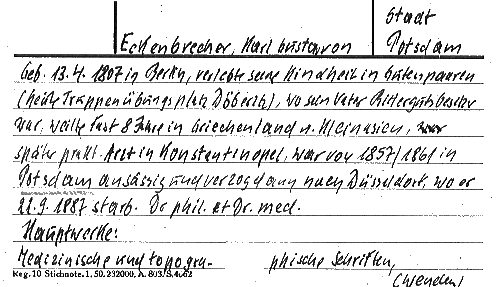 Stadt
Eckenbrecher, Karl Gustav von Potsdam
Geb. 13.4. 1807 in Berlin, verlebt seine Kindheit in Gutenpaaren
(heute Truppenübungsplatz Döberitz), wo sein Vater Rittergutsbesitzer
war, weilte fast 8 Jahre in Griechenland u. Kleinasien, war
später prakt. Arzt in Konstantinopel, war von 1857/1861 in
Potsdam ansässig und verzog dann nach Düsseldorf, wo er
21.9. 1887 starb. Dr phil. et Dr. med.
Hauptwerke:
Medizinische und topogra- phische Schriften,
Reg. 10 Stichnote. 1, 50. 232000, A. 803/S, 4062
(Wenden)